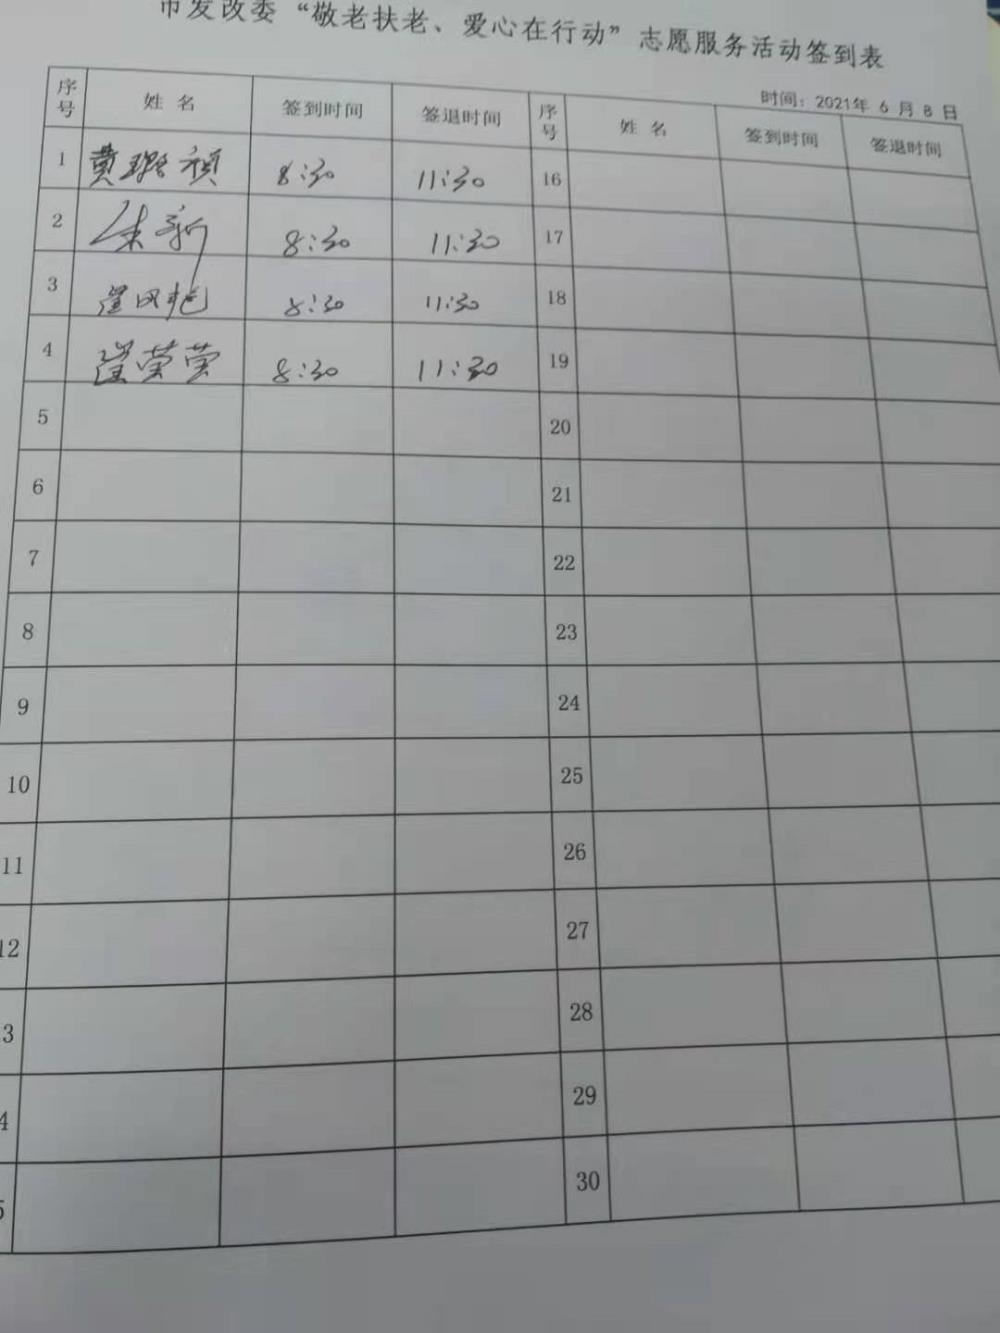 市发改委“敬老扶老、爱心在行动”志愿服务活动签到表
时间：2021年 6 月 8 日
序号 姓 名 签到时间 签退时间 序号 姓 名 签到时间 签退时间
1 黄璐祯 8:30 11:30 16
2 朱新 8:30 11:30 17
3 8:30 11:30 18
4 莹莹 8:30 11:30 19
5 20
6 21
7 22
8 23
9 24
10 25
11 26
12 27
3 28
4 29
5 30